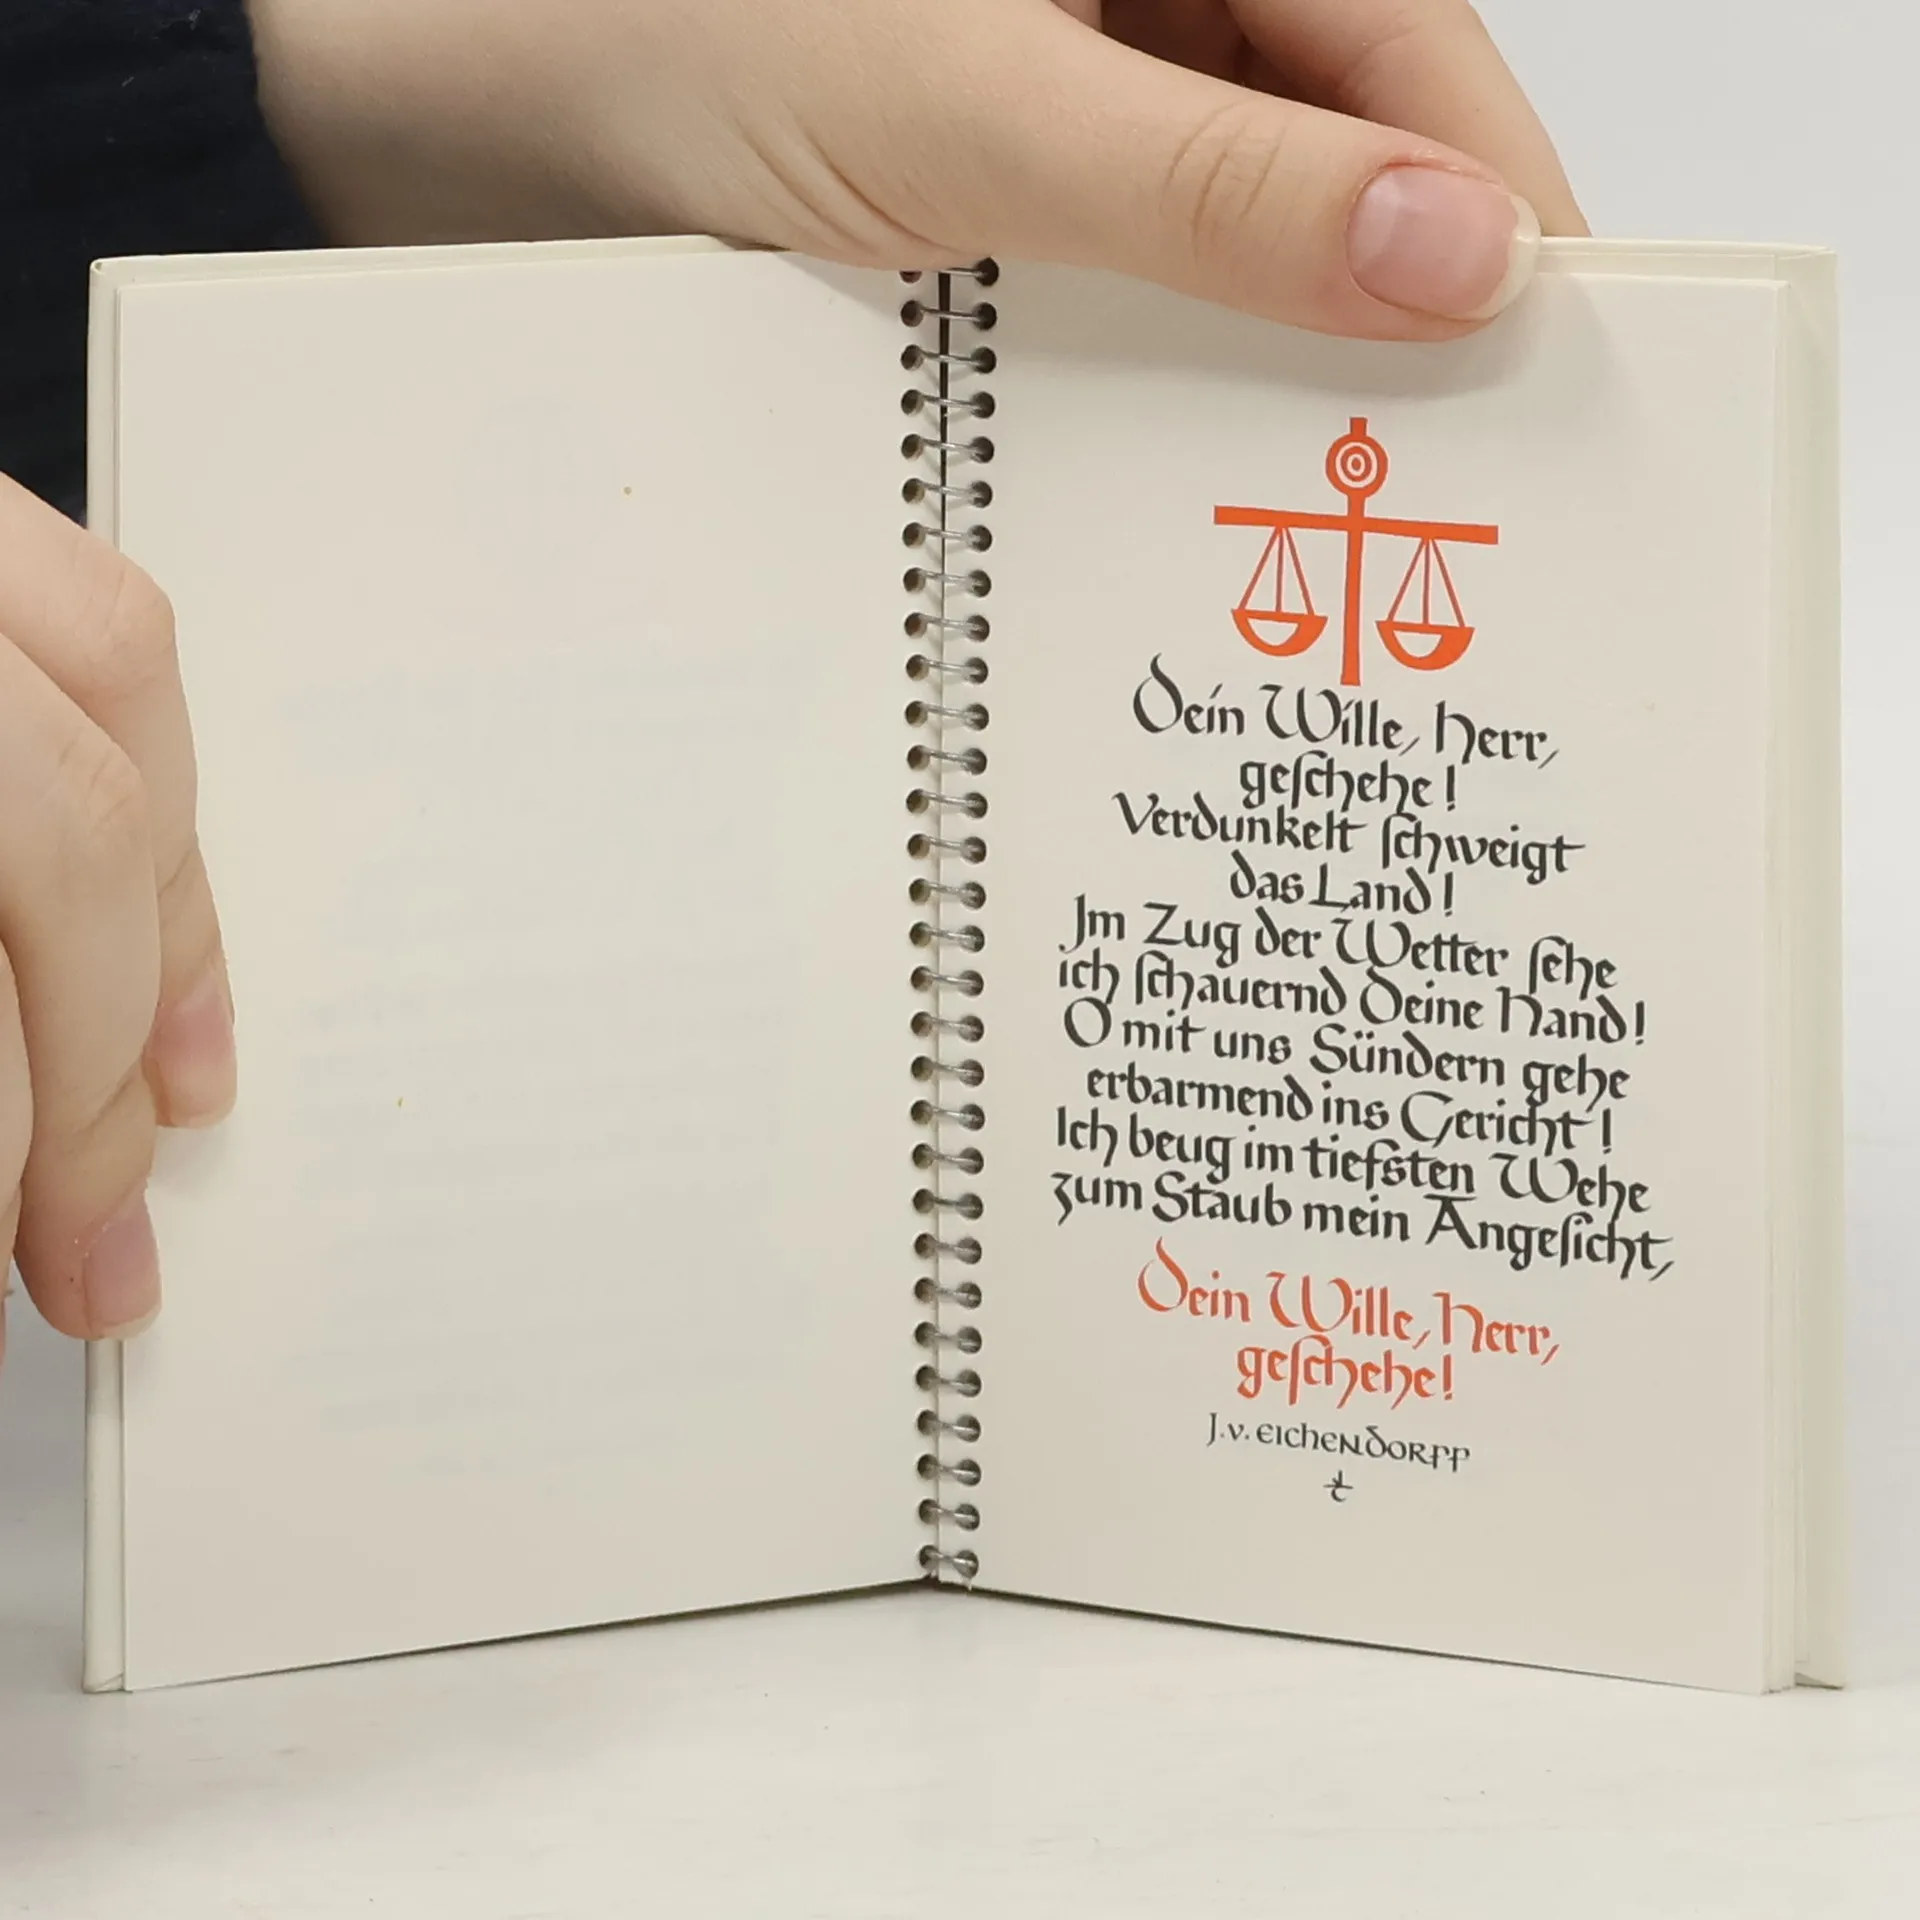 Dein Wille, Herr,
geſchehe!
Verdunkelt ſchweigt
das Land!
Jm Zug der Wetter ſehe
ich ſchauernd Deine Hand!
O mit uns Sündern gehe
erbarmend ins Gericht!
Ich beug im tiefsten Wehe
zum Staub mein Angeſicht,
Dein Wille, Herr,
geſchehe!
J.v. EICHENDORFF